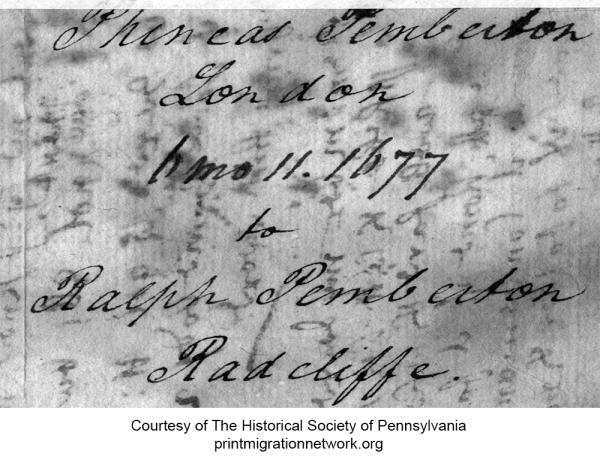 Phineas Pemberton
London
6 mo 11. 1677
to
Ralph Pemberton
Radcliffe.
Courtesy of The Historical Society of Pennsylvania
printmigrationnetwork.org